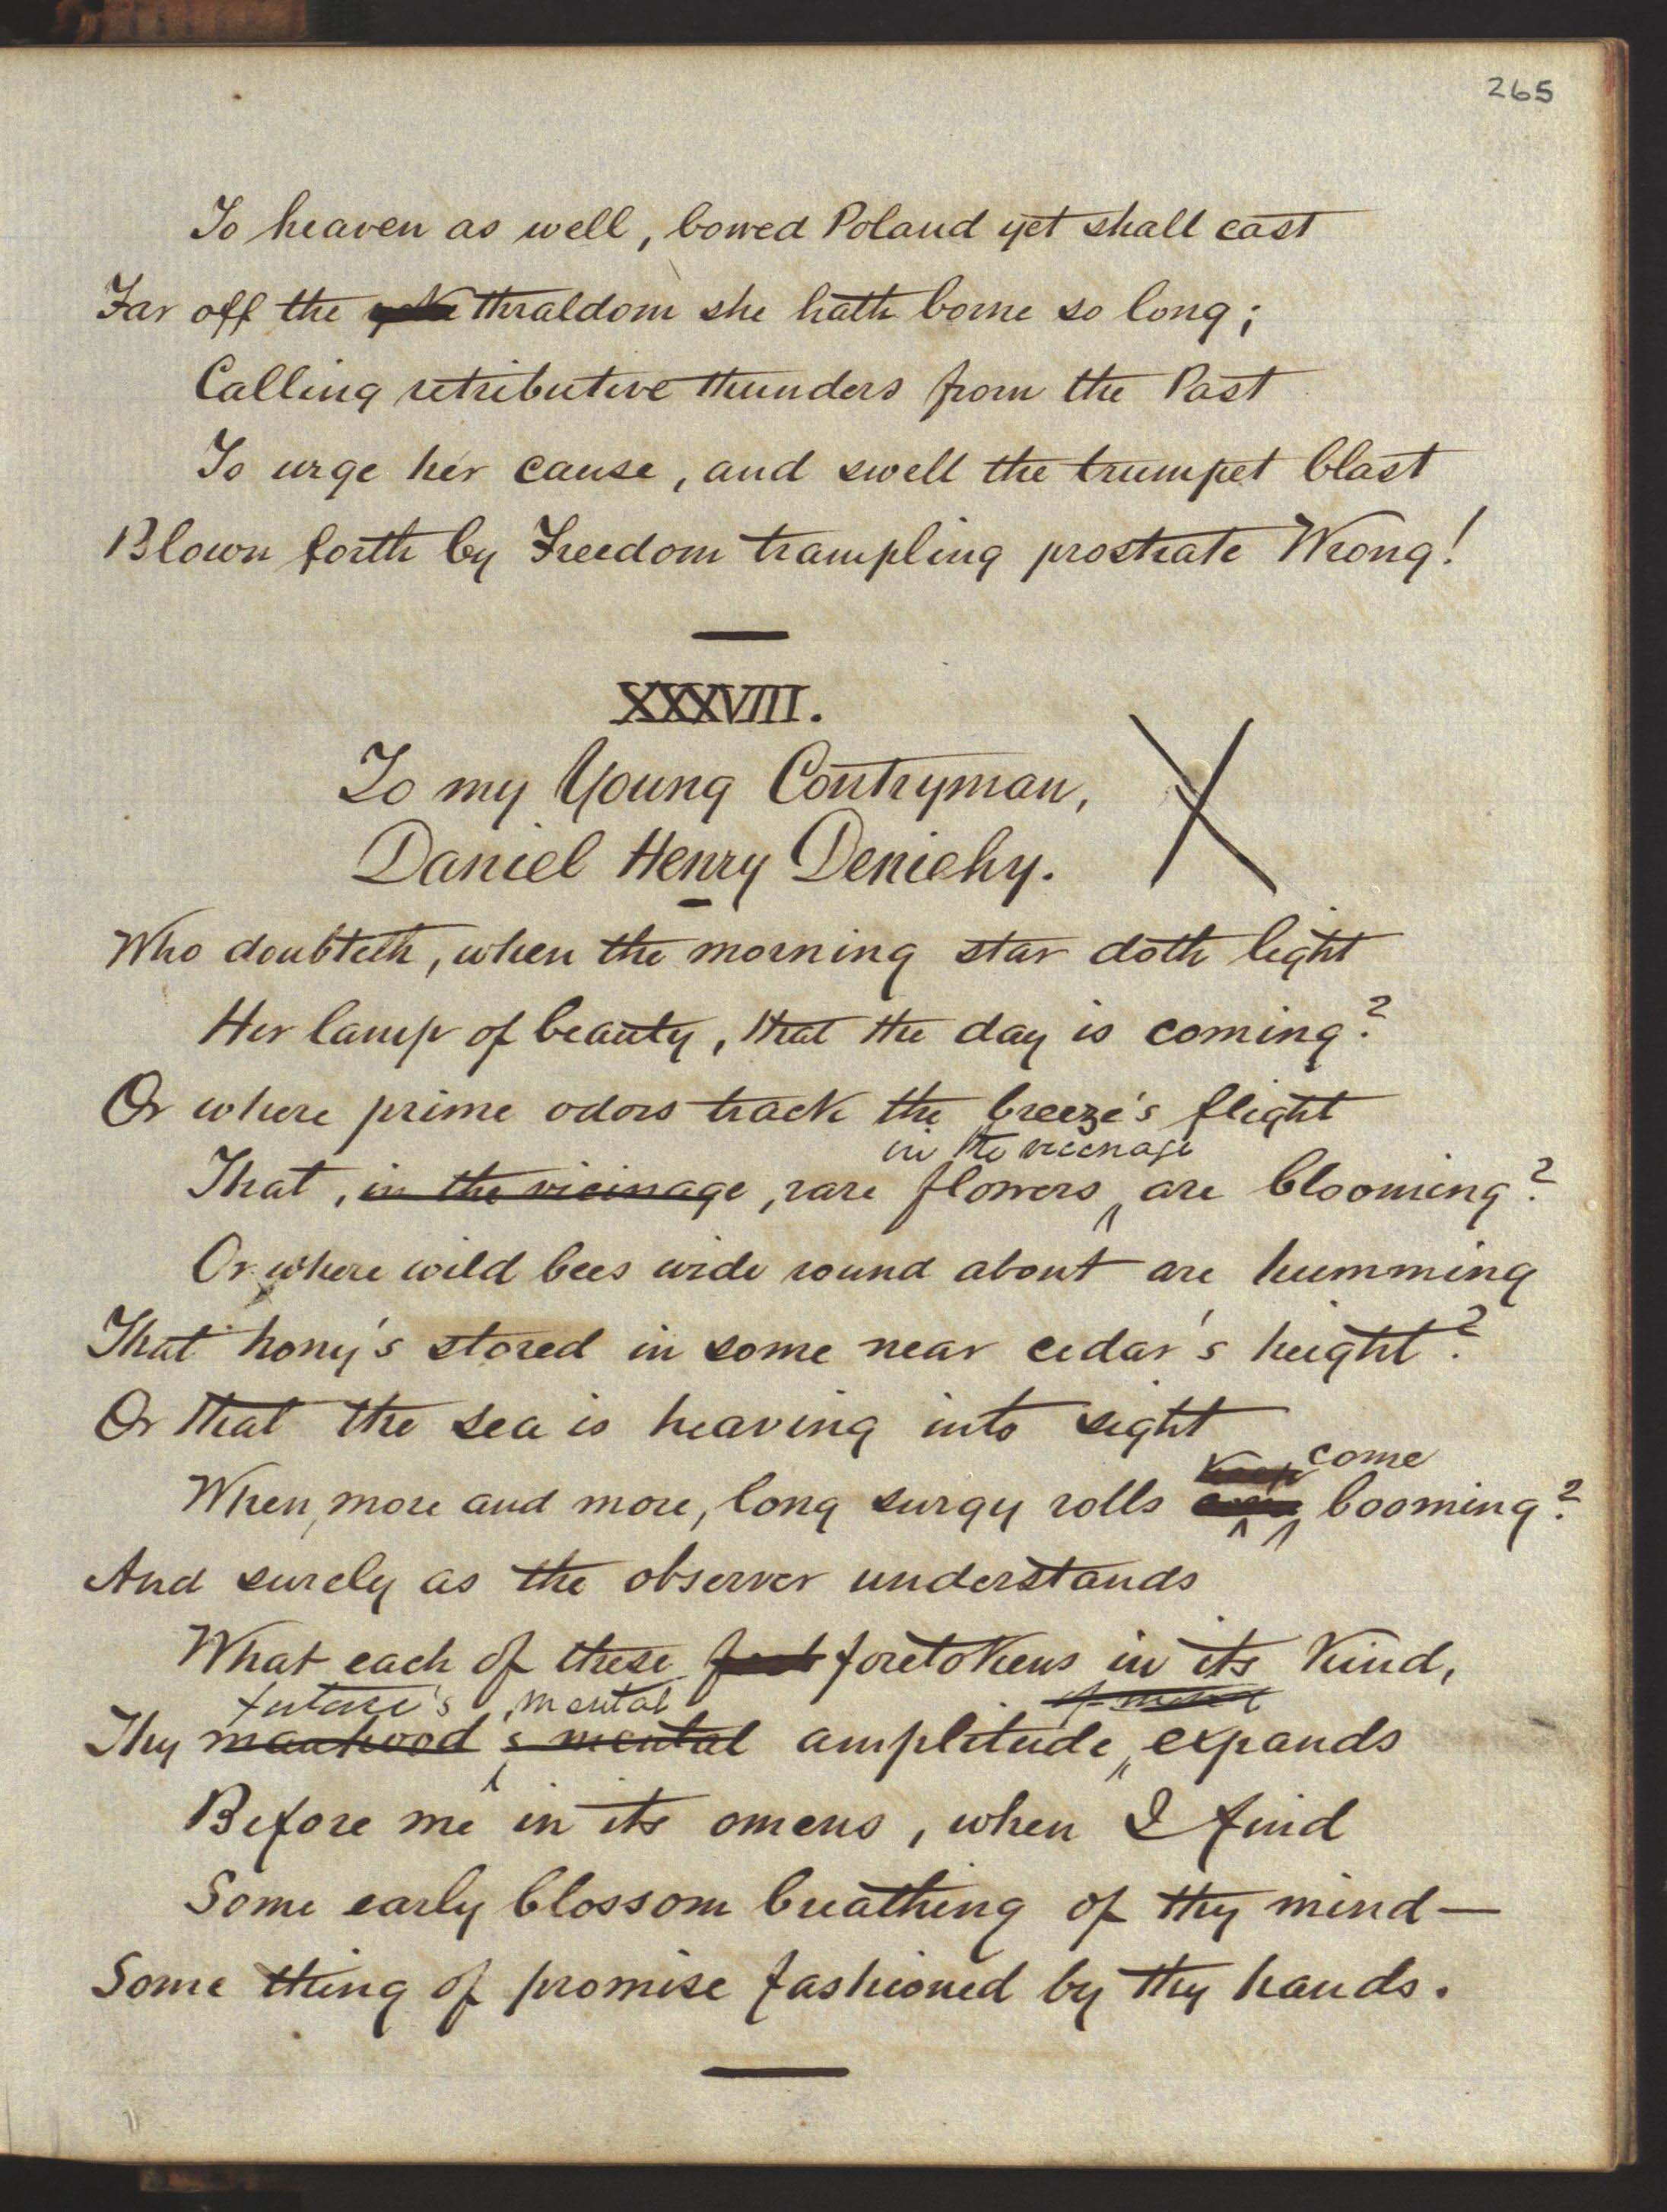 265
To heaven as well, bowed Poland yet shall cast
Far off the thraldom she hath borne so long;
Calling retributive thunders from the Past
To urge her cause, and swell the trumpet blast
Blown forth by Freedom trampling prostrate Wrong!
XXXVIII.
To my Young Contryman,
Daniel Henry Deniehy.
Who doubteth, when the morning star doth light
Her lamp of beauty, that the day is coming?
Or where prime odors track the breeze's flight
in the vicinage
That, in the vicinage, rare flowers are blooming?
Or where wild bees wide round about are humming
That hony's stored in some near cedar's height?
Or that the sea is heaving into sight
Keep come
When, more and more, long surgy rolls booming?
And surely as the observer understands
What each of these foretokens in its kind,
future's mental of mind
Thy manhood's mental amplitude expands
Before me in its omens, when I find
Some early blossom breathing of thy mind—
Some thing of promise fashioned by thy hands.